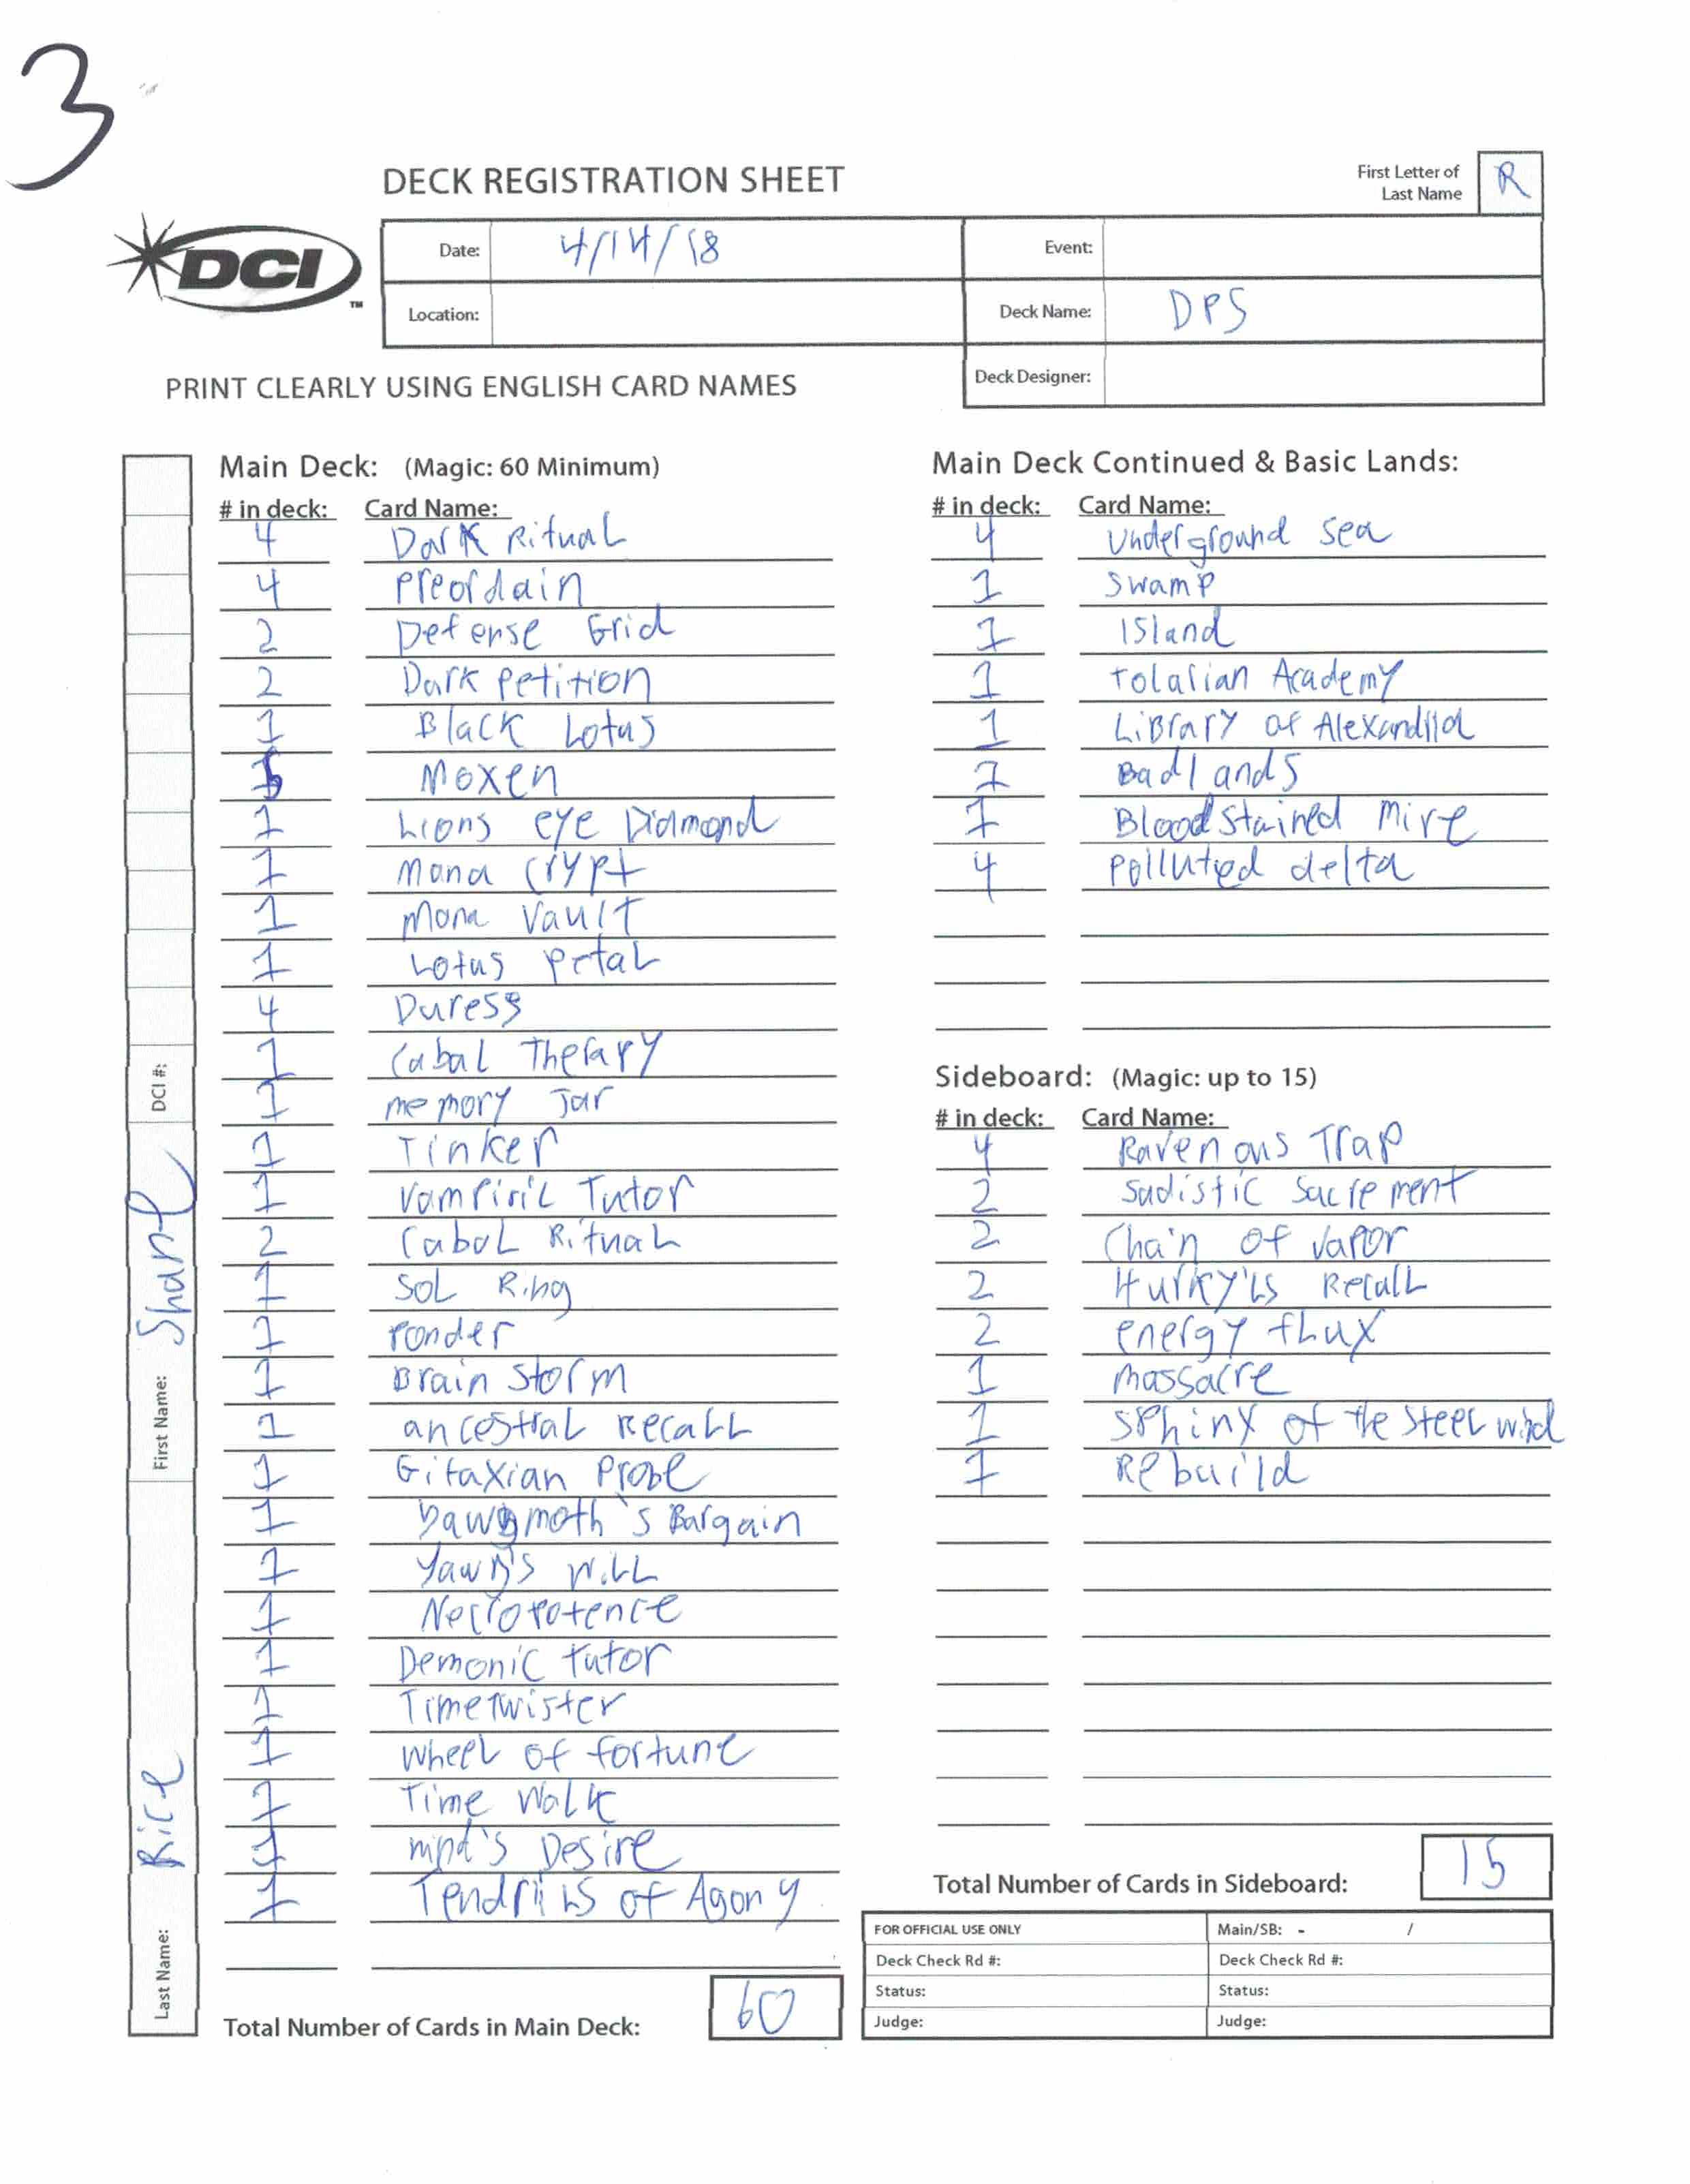 3
DECK REGISTRATION SHEET
First Letter of
Last Name
R
DCI
TM
Date: 4/14/18
Event:
Location:
Deck Name: DPS
Deck Designer:
PRINT CLEARLY USING ENGLISH CARD NAMES
Main Deck: (Magic: 60 Minimum)
# in deck: Card Name:
4 Dark Ritual
4 Preordain
2 Defense Grid
2 Dark petition
1 Black Lotus
5 Moxen
1 Lions eye Diamond
1 Mana Crypt
1 Mana Vault
1 Lotus Petal
4 Duress
1 Cabal Therapy
1 memory Jar
1 Tinker
1 Vampiric Tutor
2 Cabal Ritual
1 Sol Ring
1 Ponder
1 Brain Storm
1 ancestral Recall
1 Gitaxian Probe
1 Yawgmoth's Bargain
1 Yawg's Will
1 Necropotence
1 Demonic tutor
1 Timetwister
1 Wheel of fortune
1 Time Walk
1 mind's Desire
1 Tendrills of Agony
Total Number of Cards in Main Deck: 60
Main Deck Continued & Basic Lands:
# in deck: Card Name:
4 Underground Sea
1 Swamp
1 Island
1 Tolarian Academy
1 Library of Alexandria
1 Badlands
1 Blood Stained Mire
4 Polluted delta
Sideboard: (Magic: up to 15)
# in deck: Card Name:
4 Ravenous Trap
2 Sadistic Sacrement
2 Chain of Vapor
2 Hurky'ls Recall
2 energy flux
1 Massacre
1 Sphinx of the Steel wind
1 Rebuild
Total Number of Cards in Sideboard: 15
FOR OFFICIAL USE ONLY
Main/SB: - /
Deck Check Rd #:
Deck Check Rd #:
Status:
Status:
Judge:
Judge:
Last Name: Rice
First Name: Shane
DCI #: